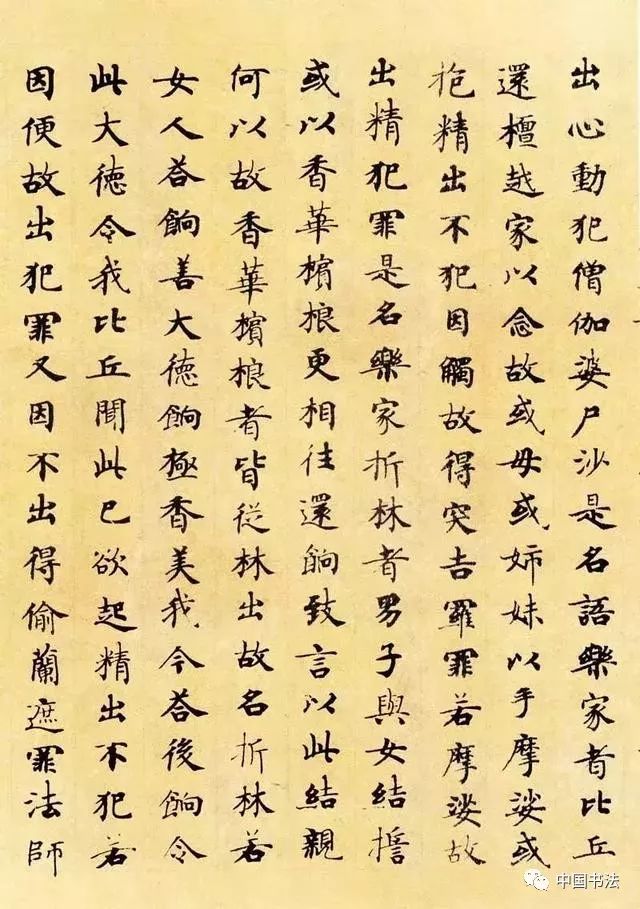 出心動犯僧伽婆尸沙是名語樂家者比丘
還檀越家以念故或母或姉妹以手摩娑或
抱精出不犯因觸故得突吉羅罪若摩娑故
出精犯罪是名樂家折林者男子與女結誓
或以香華檳榔更相往還餉致言以此結親
何以故香華檳榔者皆從林出故名折林若
女人荅餉善大德餉極香美我今荅後餉令
此大德令我比丘聞此已欲起精出不犯若
因便故出犯罪又因不出得偷蘭遮罪法師
中国书法